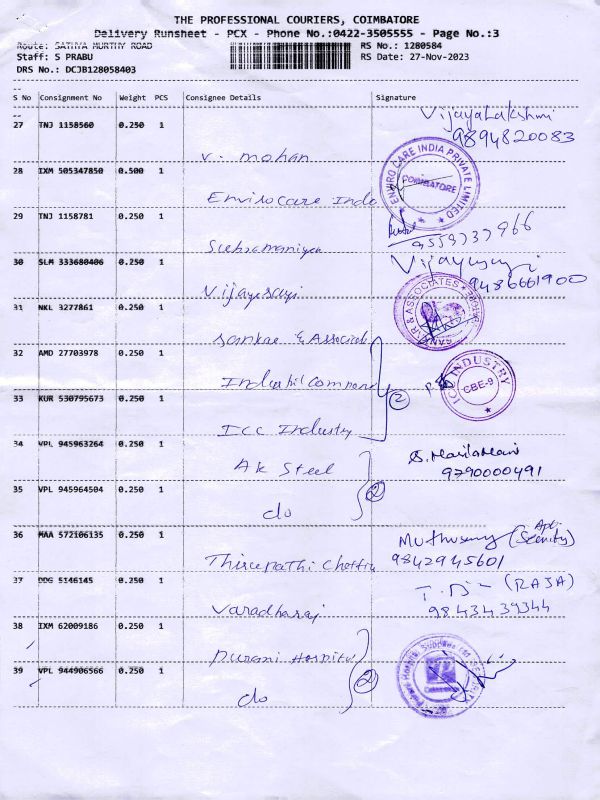 THE PROFESSIONAL COURIERS, COIMBATORE
Delivery Runsheet - PCX - Phone No.:0422-3505555 - Page No.:3
Route: SATHYA MURTHY ROAD
RS No.: 1280584
Staff: S PRABU
RS Date: 27-Nov-2023
DRS No.: DCJB128058403
--
S No Consignment No Weight PCS Consignee Details Signature
--
27 TNJ 1158560 0.250 1 V. mohan Vijayalakshmi
9894820083
28 IXM 505347850 0.500 1 Envirocare Indo
ENVIRO CARE INDIA PRIVATE LIMITED
COIMBATORE
29 TNJ 1158781 0.250 1 Subramaniyan
30 SLM 333680406 0.250 1 Vijayasayi
9486661900
31 NKL 3277861 0.250 1 Sankar & Associat
SANKAR & ASSOCIATES
32 AMD 27703978 0.250 1
33 KUR 530795673 0.250 1 ICC Industry 2
ICC INDUSTRY
CBE-9
34 VPL 945963264 0.250 1 AK Steel
9790000491
35 VPL 945964504 0.250 1 do 2
36 MAA 572106135 0.250 1 Thirupathi Muthusamy
9842945601
37 DDG 5146145 0.250 1 Varadharaj (RAJA)
9843439344
38 IXM 62009186 0.250 1
39 VPL 944906566 0.250 1 do 2